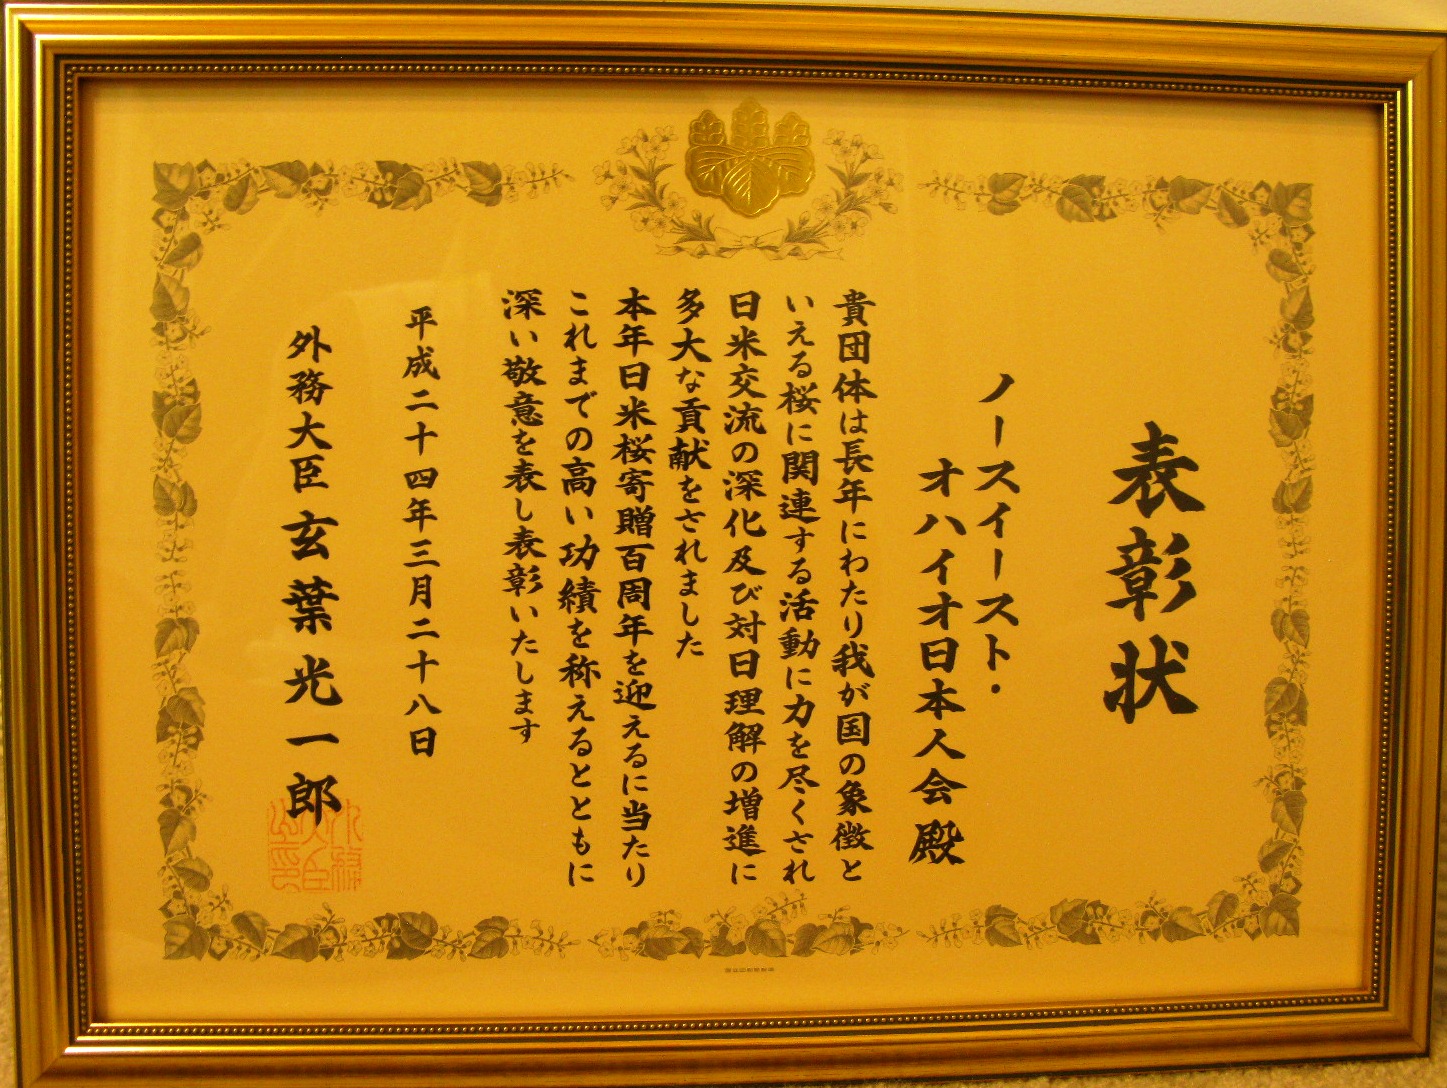 表彰状
ノースイースト・
オハイオ日本人会殿
貴団体は長年にわたり我が国の象徴と
いえる桜に関連する活動に力を尽くされ
日米交流の深化及び対日理解の増進に
多大な貢献をされました
本年日米桜寄贈百周年を迎えるに当たり
これまでの高い功績を称えるとともに
深い敬意を表し表彰いたします
平成二十四年三月二十八日
外務大臣 玄葉光一郎
外務大臣之印